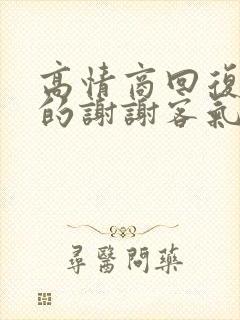 高情商回復
的謝謝客氣
尋醫問藥